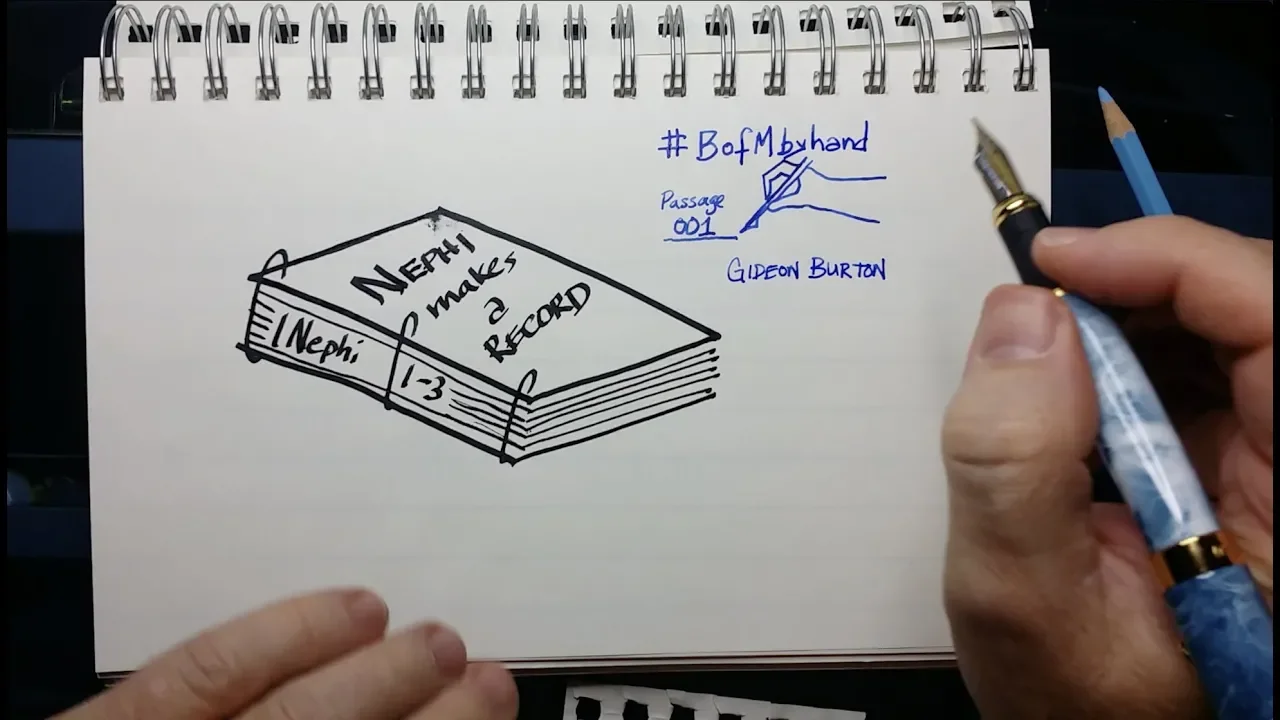 #BofMbyhand
Passage
001
GIDEON BURTON
NEPHI
makes
a
RECORD
1 Nephi
1-3